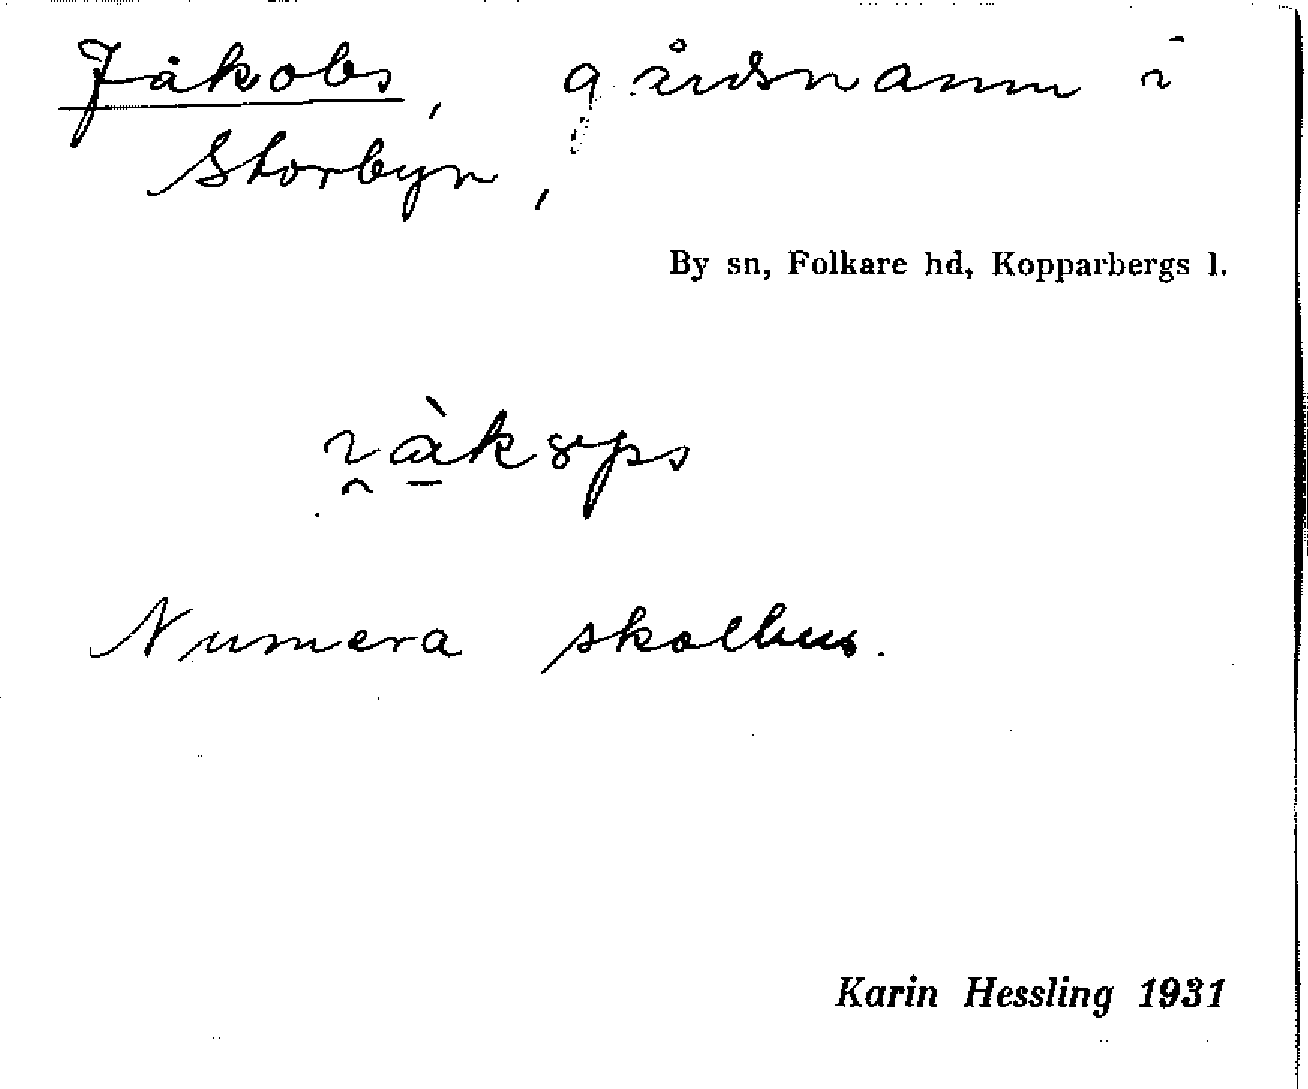 Jäkobs, gårdsnamn i
Storbyn,
By sn, Folkare hd, Kopparbergs l.
Numera skolhus.
Karin Hessling 1931